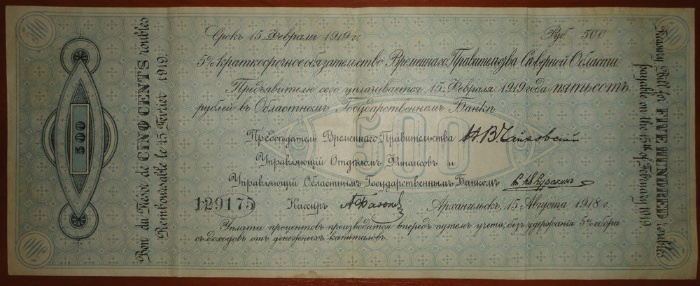 Срокъ 15 Февраля 1919 г.
Руб. 500
5% Краткосрочное обязательство Временнаго Правительства Сѣверной Области
Предъявителю сего уплачивается 15 Февраля 1919 года пятьсотъ
рублей въ Областномъ Государственномъ Банкѣ.
Предсѣдатель Временнаго Правительства Н.В. Чайковскій
Управляющій Отдѣломъ Финансовъ и
Управляющій Областнымъ Государственнымъ Банкомъ
129175 Кассиръ
Архангельскъ, 15 Августа 1918 г.
Уплата процентовъ производится впередъ путемъ учета, безъ удержанія 5% сбора
съ доходовъ отъ денежныхъ капиталовъ.
500
500
Bon du Trésor de CINQ CENTS roubles
Remboursable le 15 Février 1919.
Treasury Bill for FIVE HUNDRED roubles
payable on the 15th of February 1919